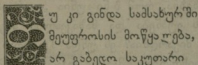 უ კი გინდა სამსახურში
მეუფროსის მოწყალება,
არ გაბედო საკუთარი